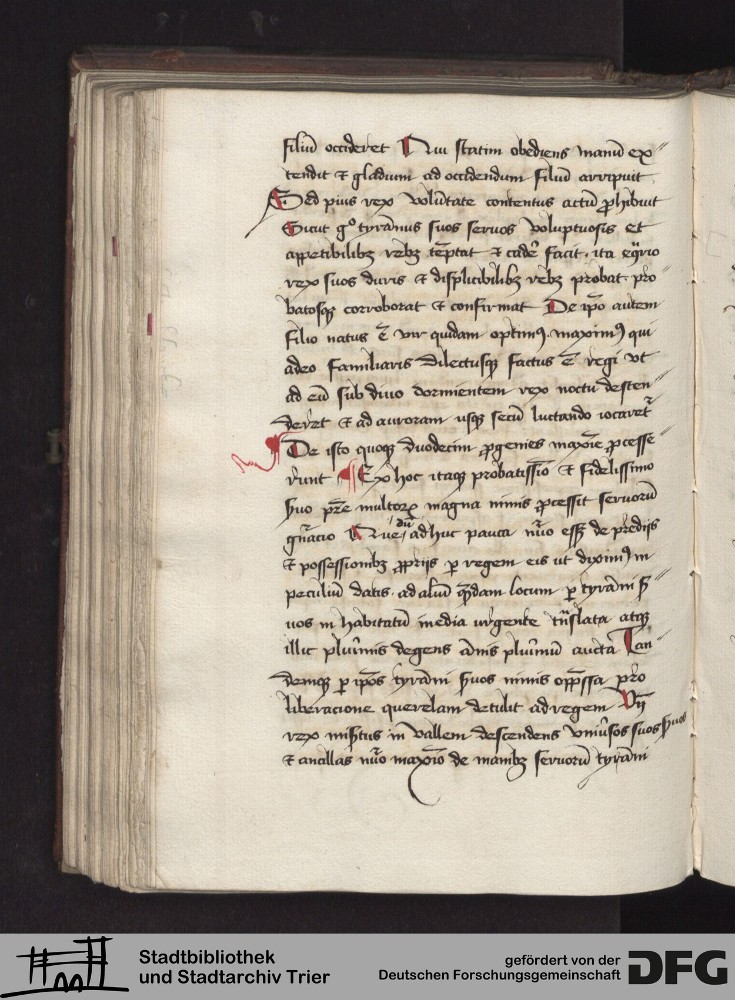 filiū occideret Qui statim obediens manū ex
tendit & gladium ad occidendum filiū arripuit
Sed pius rex volūtate contentus actū ꝓhibuit
Sicut gͦ tyrānus suos seruos voluptuosis et
appetibilibꝫ rebꝫ tēptat & cadē facit. ita
rex suos duris & displicibilibꝫ rebꝫ probat. pro
batosqꝫ corroborat & confirmat De ipō autem
filio natus ē vir quidam optimꝰ. maximꝰ qui
adeo familiaris dilectusqꝫ factus ē regi vt
ad eū sub diuo dormientem rex noctu descen
deret & ad auroram usqꝫ secū luctando iocaret̄
De isto quoqꝫ duodecim ꝓgenies maxīe ꝓcesse
runt Ex hoc itaqꝫ probatissīo & fidelissimo
s̄uo pr̄e multorꝝ magna nimis ꝓcessit seruorū
gn̄acio Que dū adhuc pauca nūo ess; de predijs
& possessionibꝫ ꝓprijs ꝑ regem eis ut diximꝰ in
peculiū datis. ad aliū quēdam locum ꝑ tyrāni s̄
uos in habitatū inedia urgente trāslata atqꝫ
illic plurimis degens ānis plurimū aucta Tan
demqꝫ ꝑ ipōs tyrāni s̄uos nimis opp̄ssa pro
liberacione querelam detulit ad regem Vn̄
rex misertus in vallem descendens vniūsos suos s̄uos
& ancillas nūo maxīo de manibꝫ seruorū tyrāni
Stadtbibliothek
und Stadtarchiv Trier
gefördert von der
Deutschen Forschungsgemeinschaft
DFG